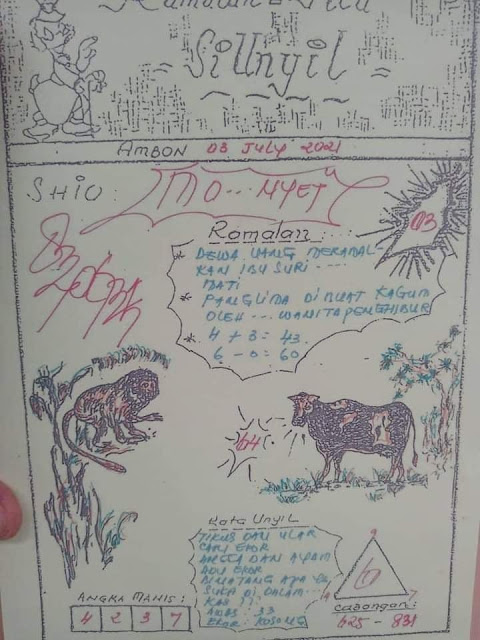 Si Unyil
AMBON 03 JULY 2021
SHIO: MO.. NYET"
03
Ramalan:
DEWA UANG MERAMAL
KAN IBU SURI ....
MATI
* PANGLIMA DI BUAT KAGUM
OLEH ... WANITA PENGHIBUR
* 4 + 3 = 43
6 - 0 = 60
64
Kata Unyil
TIKUS DAN ULAR
CARI EKOR
DAN AYAM
ADU EKOR
BINATANG APA YG
SUKA DI DALAM...
KAN ??
AWAS : 33
EKOR : KOSONG
9
7
ANGKA MANIS:
4 2 3 7
Cabangan:
625 - 831